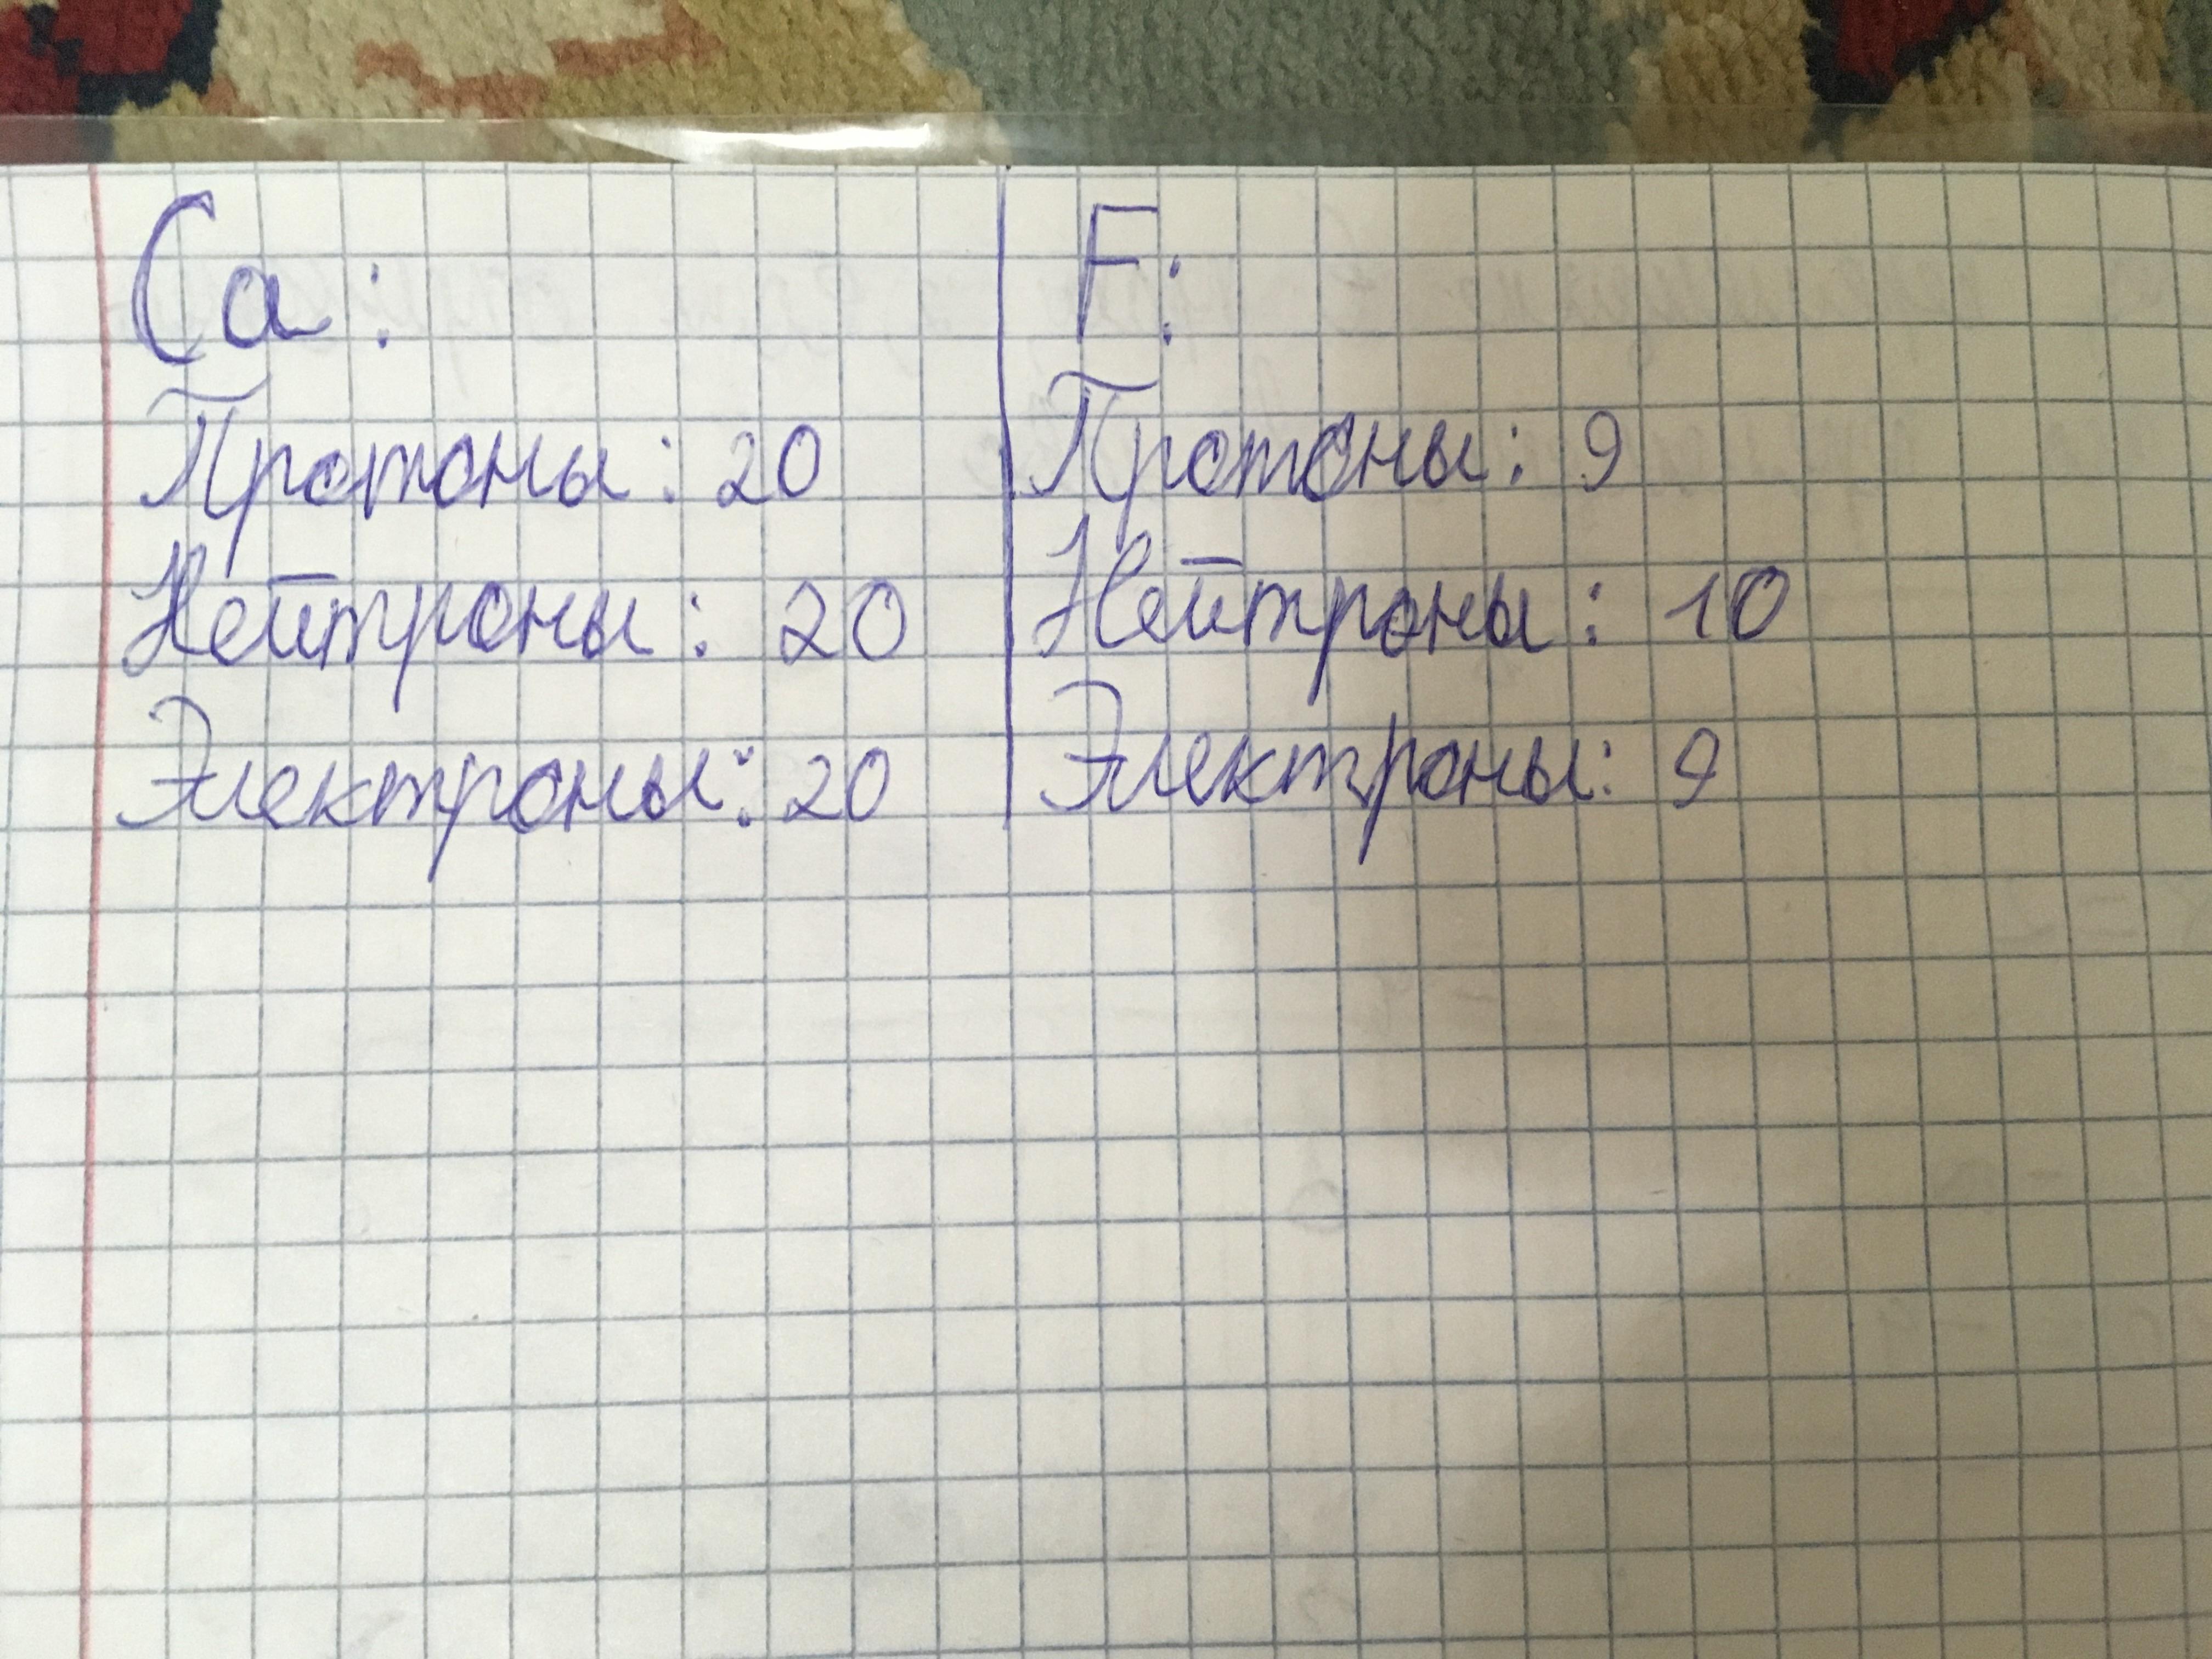 Ca:
Протоны: 20
Нейтроны: 20
Электроны: 20
F:
Протоны: 9
Нейтроны: 10
Электроны: 9